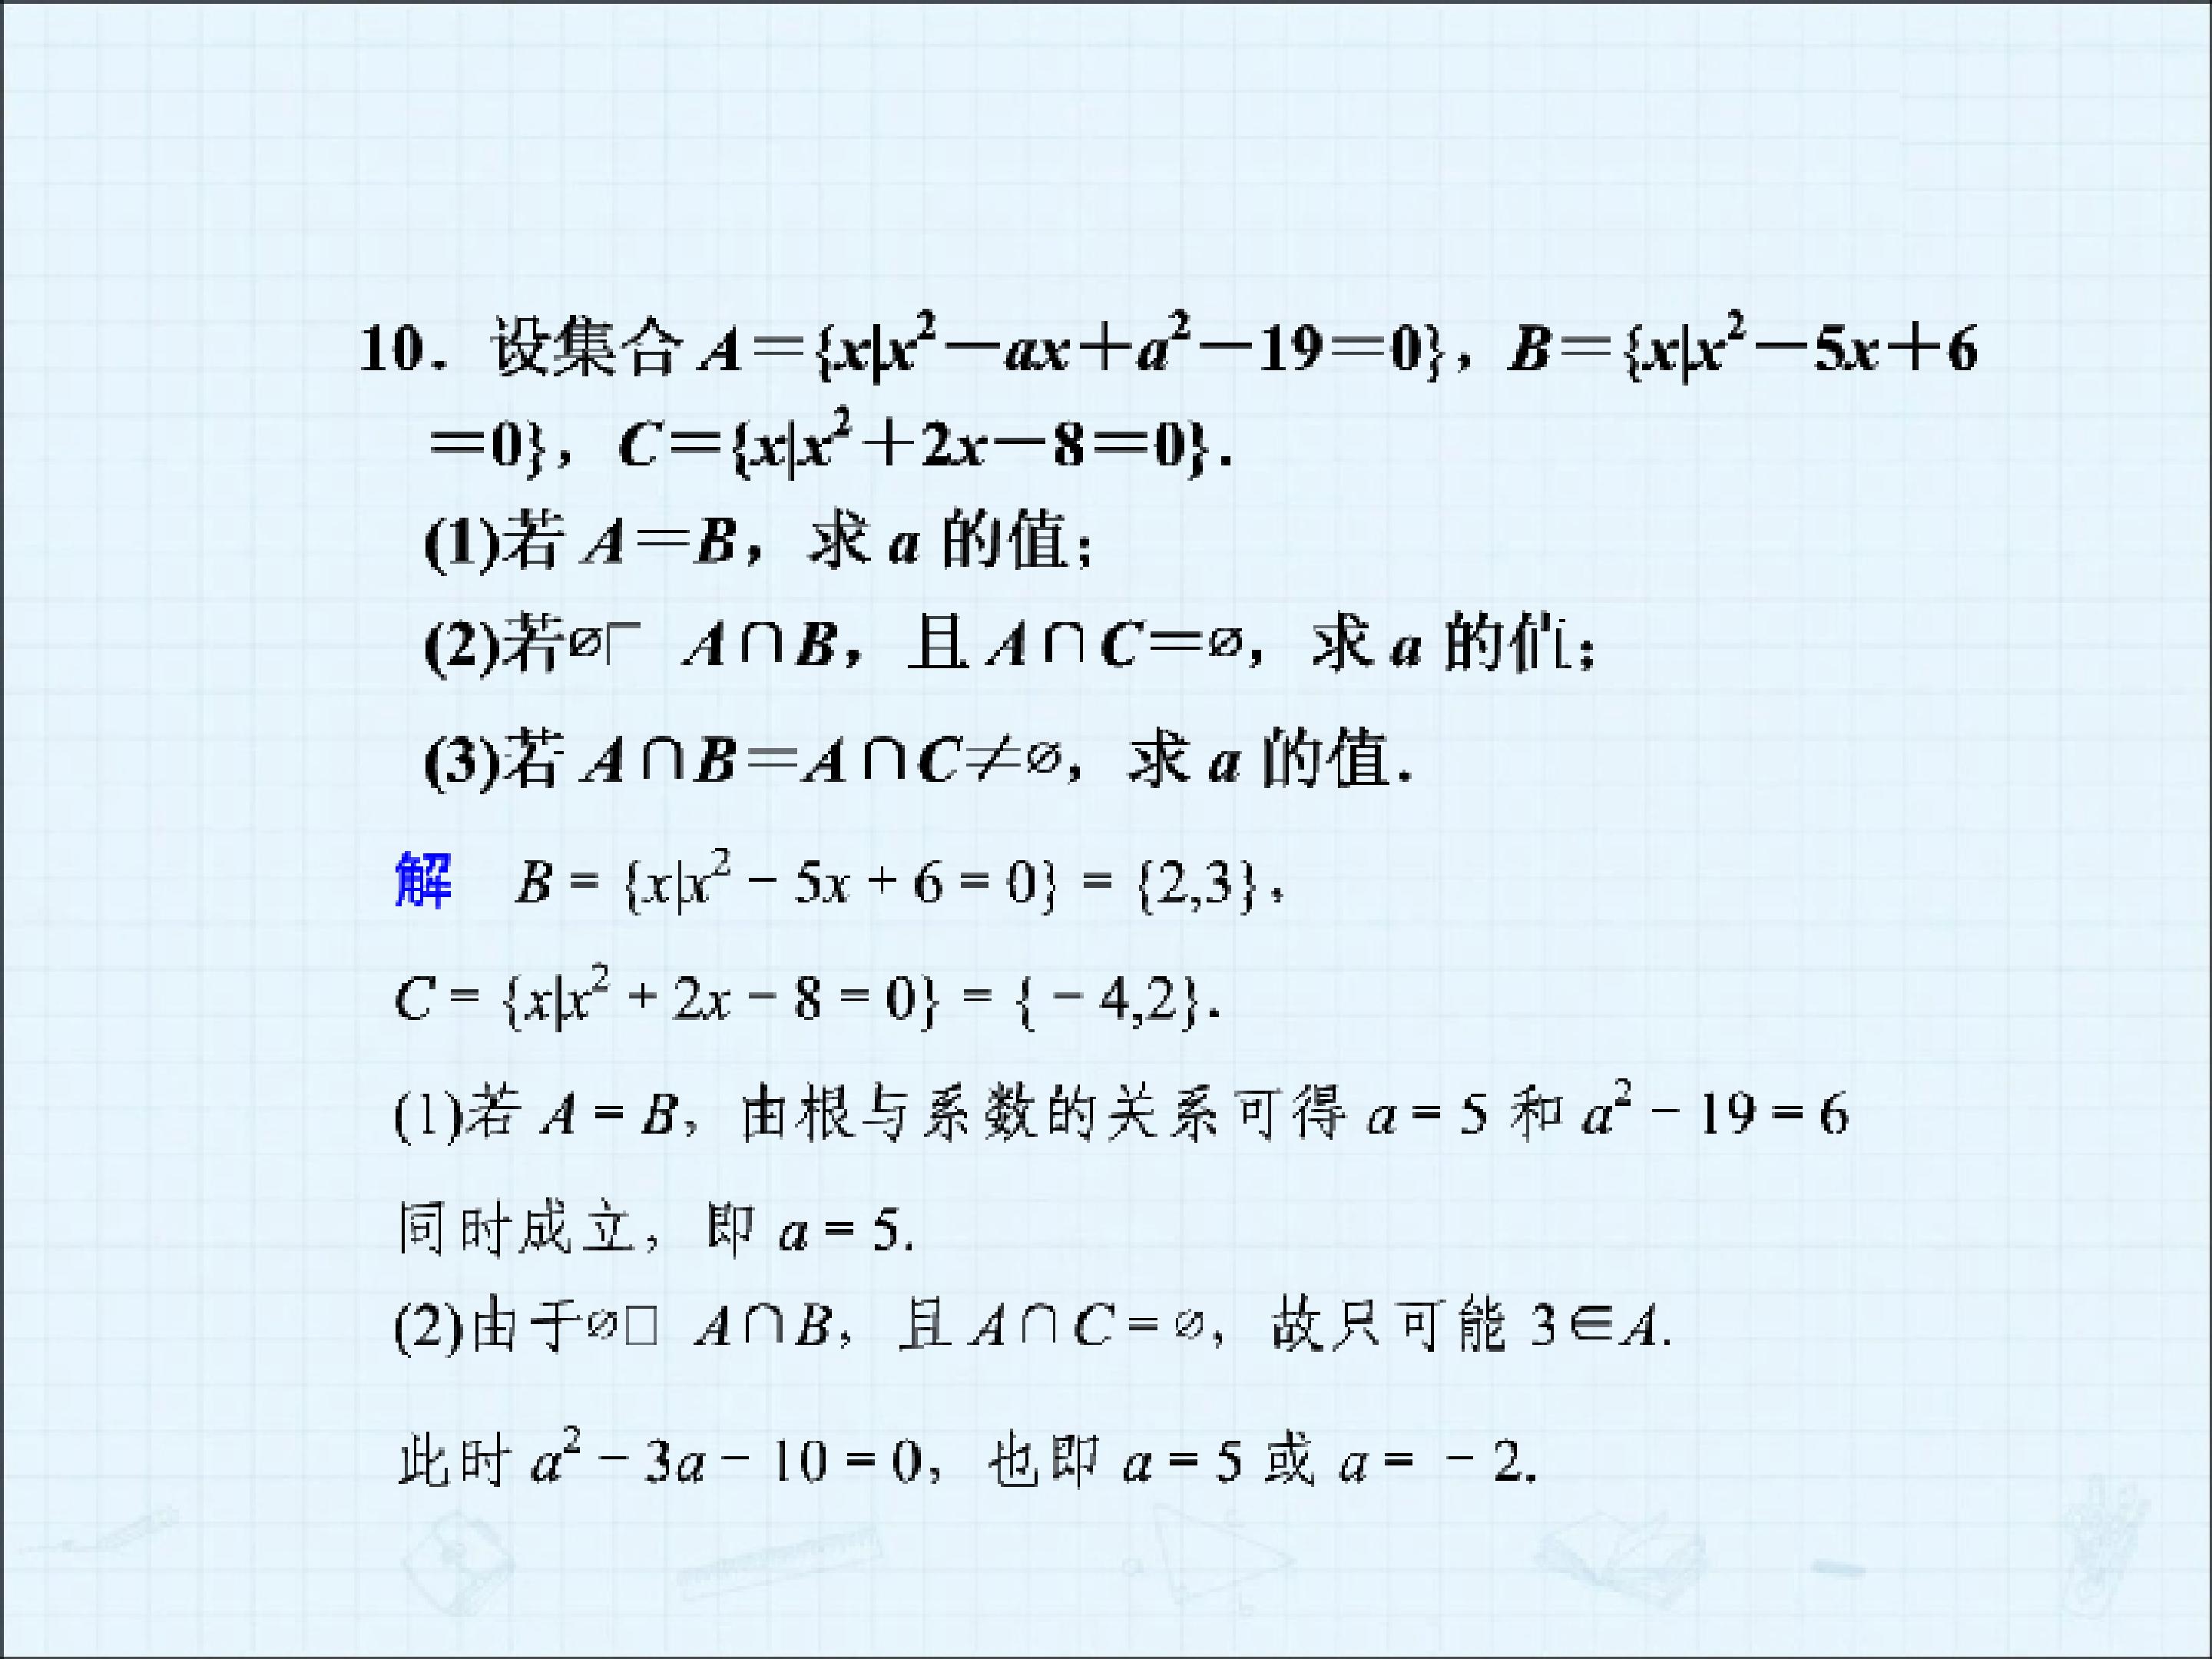 10．设集合 A＝{x|x²－ax＋a²－19＝0}，B＝{x|x²－5x＋6
＝0}，C＝{x|x²＋2x－8＝0}．
(1)若 A＝B，求 a 的值；
(2)若∅ A∩B，且 A∩C＝∅，求 a 的值；
(3)若 A∩B＝A∩C≠∅，求 a 的值．
解 B = {x|x² - 5x + 6 = 0} = {2,3}，
C = {x|x² + 2x - 8 = 0} = { - 4,2}．
(1)若 A = B，由根与系数的关系可得 a = 5 和 a² - 19 = 6
同时成立，即 a = 5.
(2)由于∅□ A∩B，且 A∩C = ∅，故只可能 3∈A.
此时 a² - 3a - 10 = 0，也即 a = 5 或 a = - 2.